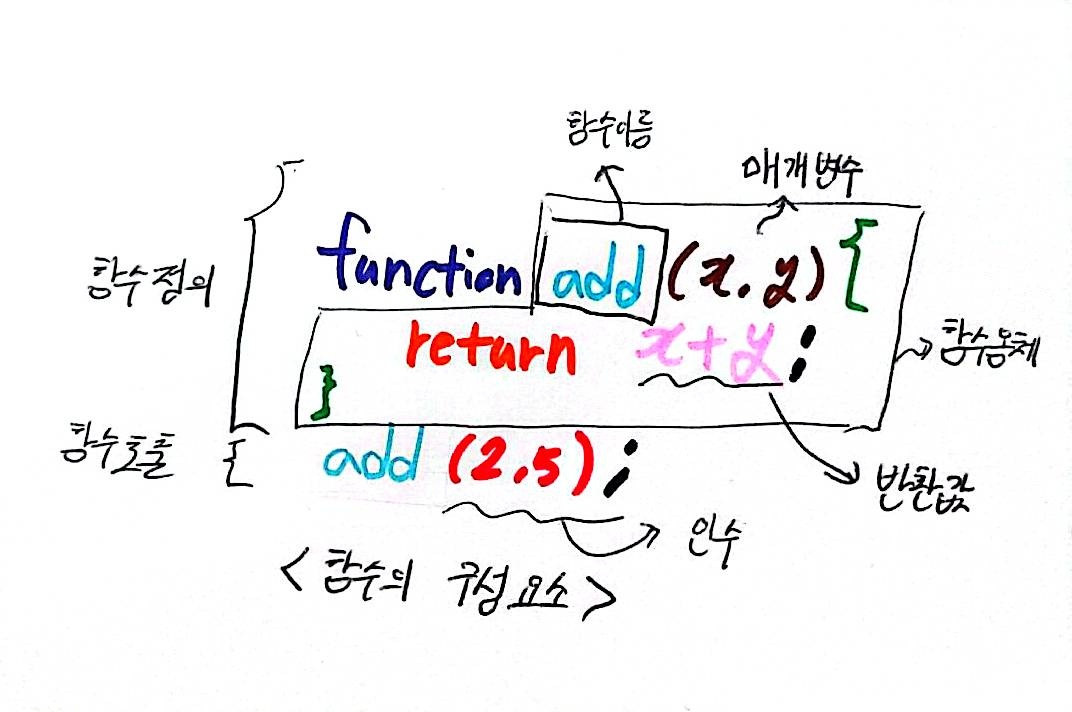 함수이름
매개변수
함수정의
function add (x, y) {
return x+y;
함수몸체
}
함수호출 { add (2,5);
반환값
인수
<함수의 구성요소>